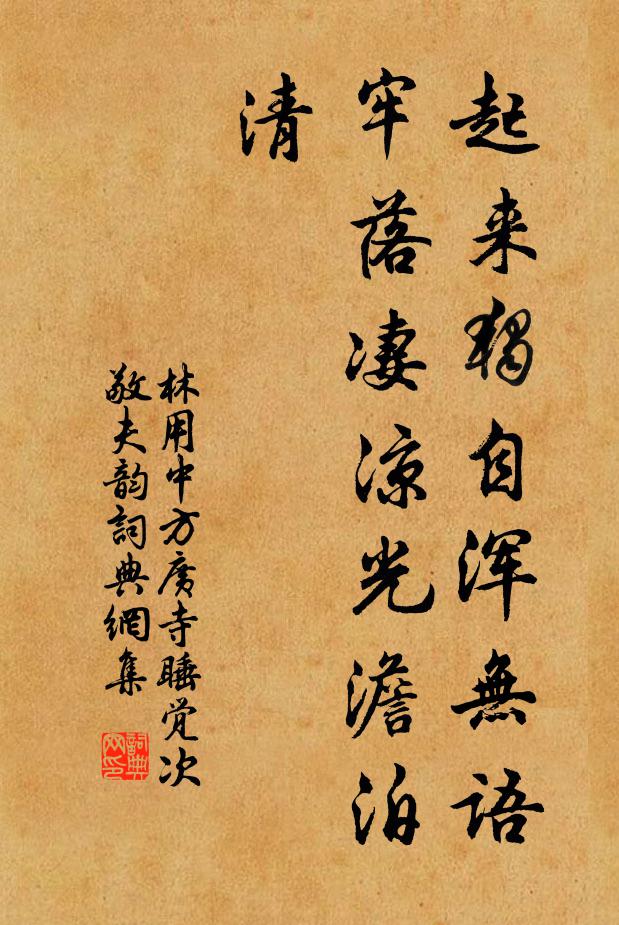 起来獨自浑無語
牢落凄凉光澹泊
清
林用中方廣寺睡觉次
敬夫韵詞典網集
詞典
网印